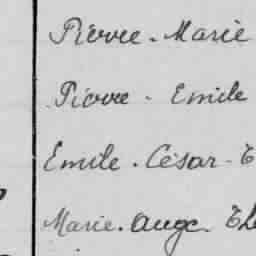 Pierre - Marie
Pierre - Emile
Emile - César -
Marie - Ange